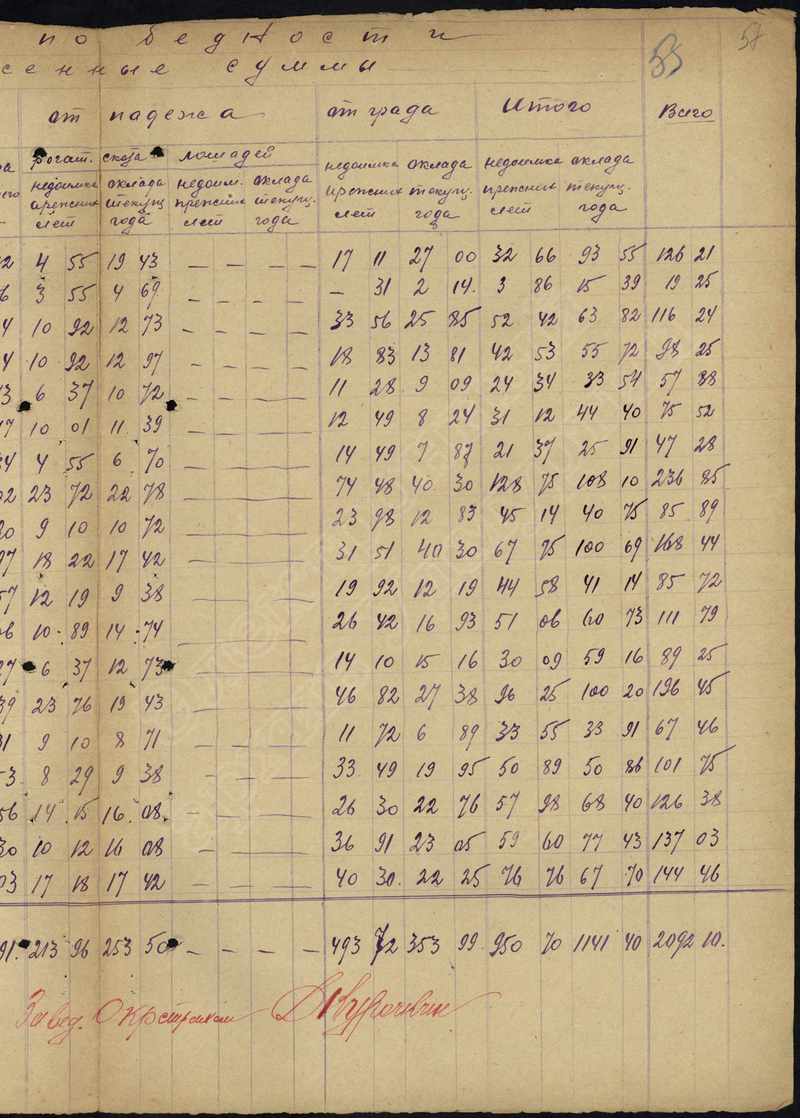 по бедности
сенные суммы
55 58
от падежа от града Итого Всего
рогат. скота лошадей
недоимка прежних лет оклада текущ. года недоим. прежних лет оклада текущ. года недоимка прежних лет оклада текущ. года недоимка прежних лет оклада текущ. года
4 55 19 43 — — — — 17 11 27 00 32 66 93 55 126 21
3 55 4 69 — — — — — 31 2 14 3 86 15 39 19 25
10 92 12 73 — — — — 33 56 25 85 52 42 63 82 116 24
10 92 12 97 — — — — 18 83 13 81 42 53 55 72 98 25
6 37 10 72 — — — — 11 28 9 09 24 34 33 54 57 88
10 01 11 39 — — — — 12 49 8 24 31 12 44 40 75 52
4 55 6 70 — — — — 14 49 7 87 21 37 25 91 47 28
23 72 22 78 — — — — 74 48 40 30 128 75 108 10 236 85
9 10 10 72 — — — — 23 98 12 83 45 14 40 75 85 89
18 22 17 42 — — — — 31 51 40 30 67 75 100 69 168 44
12 19 9 38 — — — — 19 92 12 19 44 58 41 14 85 72
10 89 14 74 — — — — 26 42 16 93 51 06 60 73 111 79
6 37 12 73 — — — — 14 10 15 16 30 09 59 16 89 25
23 76 19 43 — — — — 46 82 27 38 96 25 100 20 196 45
9 10 8 71 — — — — 11 72 6 89 33 55 33 91 67 46
8 29 9 38 — — — 33 49 19 95 50 89 50 86 101 75
14 15 16 08 — — — — 26 30 22 76 57 98 68 40 126 38
10 12 16 08 — — — — 36 91 23 05 59 60 77 43 137 03
17 18 17 42 — — — — 40 30 22 25 76 76 67 70 144 46
91 213 96 253 50 — — — — 493 72 353 99 950 70 1141 40 2092 10
Завед. Окрстрахом